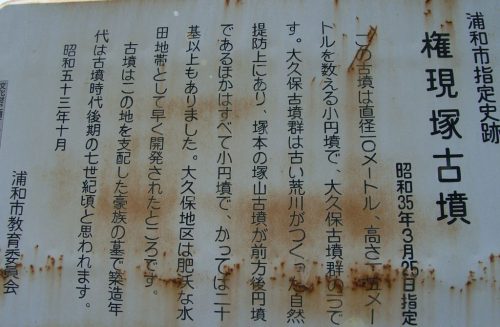 浦和市指定史跡
権現塚古墳
昭和35年3月25日指定
この古墳は直径二〇メートル、高さ 五メー
トルを数える小円墳で、大久保古墳群の一つで
す。大久保古墳群は古い荒川がつくった自然
堤防上にあり、塚本の塚山古墳が前方後円墳
であるほかはすべて小円墳で、かつては二十
基以上もありました。大久保地区は肥沃な水
田地帯として早く開発されたところです。
古墳はこの地を支配した豪族の墓で築造年
代は古墳時代後期の七世紀頃と思われます。
昭和五十三年十月
浦和市教育委員会